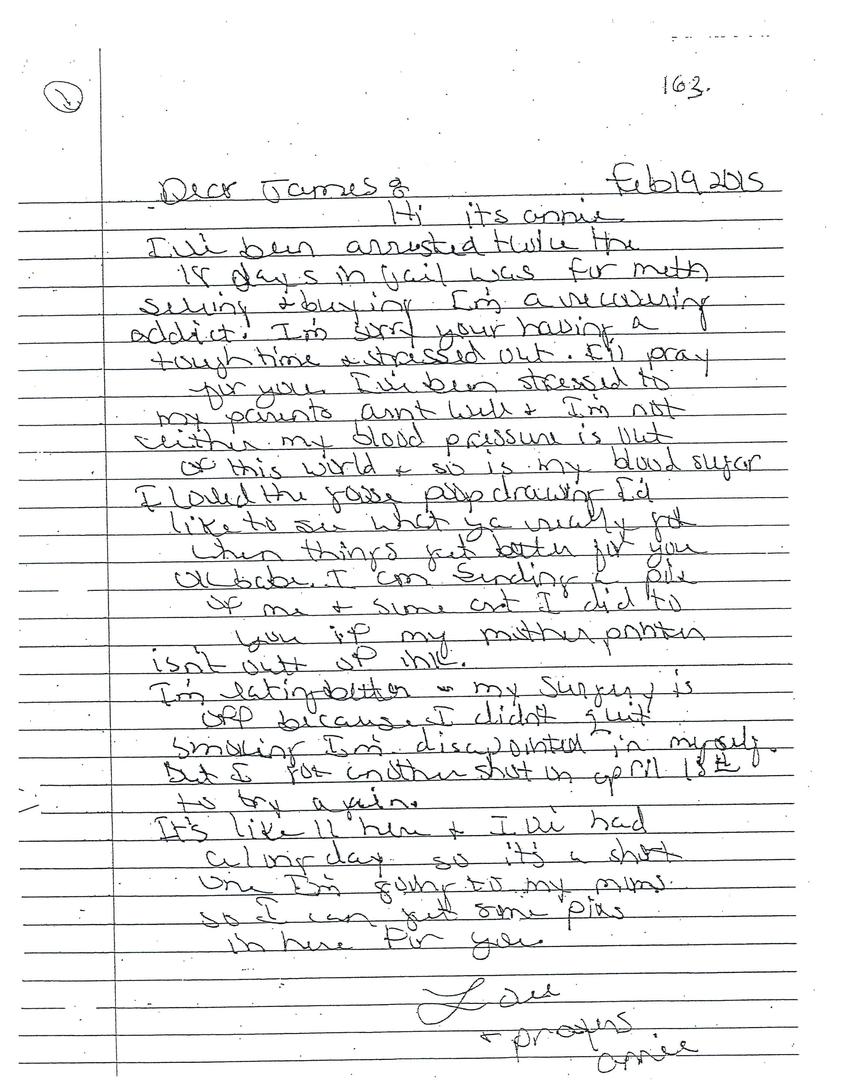 163.
Dear James Feb 19 2015
Hi its annie
I've been arrested twice the
18 days in jail was for meth
selling + buying I'm a recovering
addict! I'm sorry your having a
tough time + stressed out. I'll pray
for you. I've been stressed to
my parents arnt well + I'm not
either my blood pressure is out
of this world + so is my blood sugar
I loved the drawing I'd
like to see what ya really got
when things get better for you
ok babe. I am sending a pix
of me + some art I did to
you if my mother printer
isn't outt of ink.
I'm eating better - my surgery is
off because I didn't quit
smoking I'm disapointed in myself.
But I got another shot in april 13th
to try again.
It's like 11 here + I've had
a long day so it's a short
one I'm going to my moms
so I can get some pixs
in here for you.
Love
+ prayers
annie